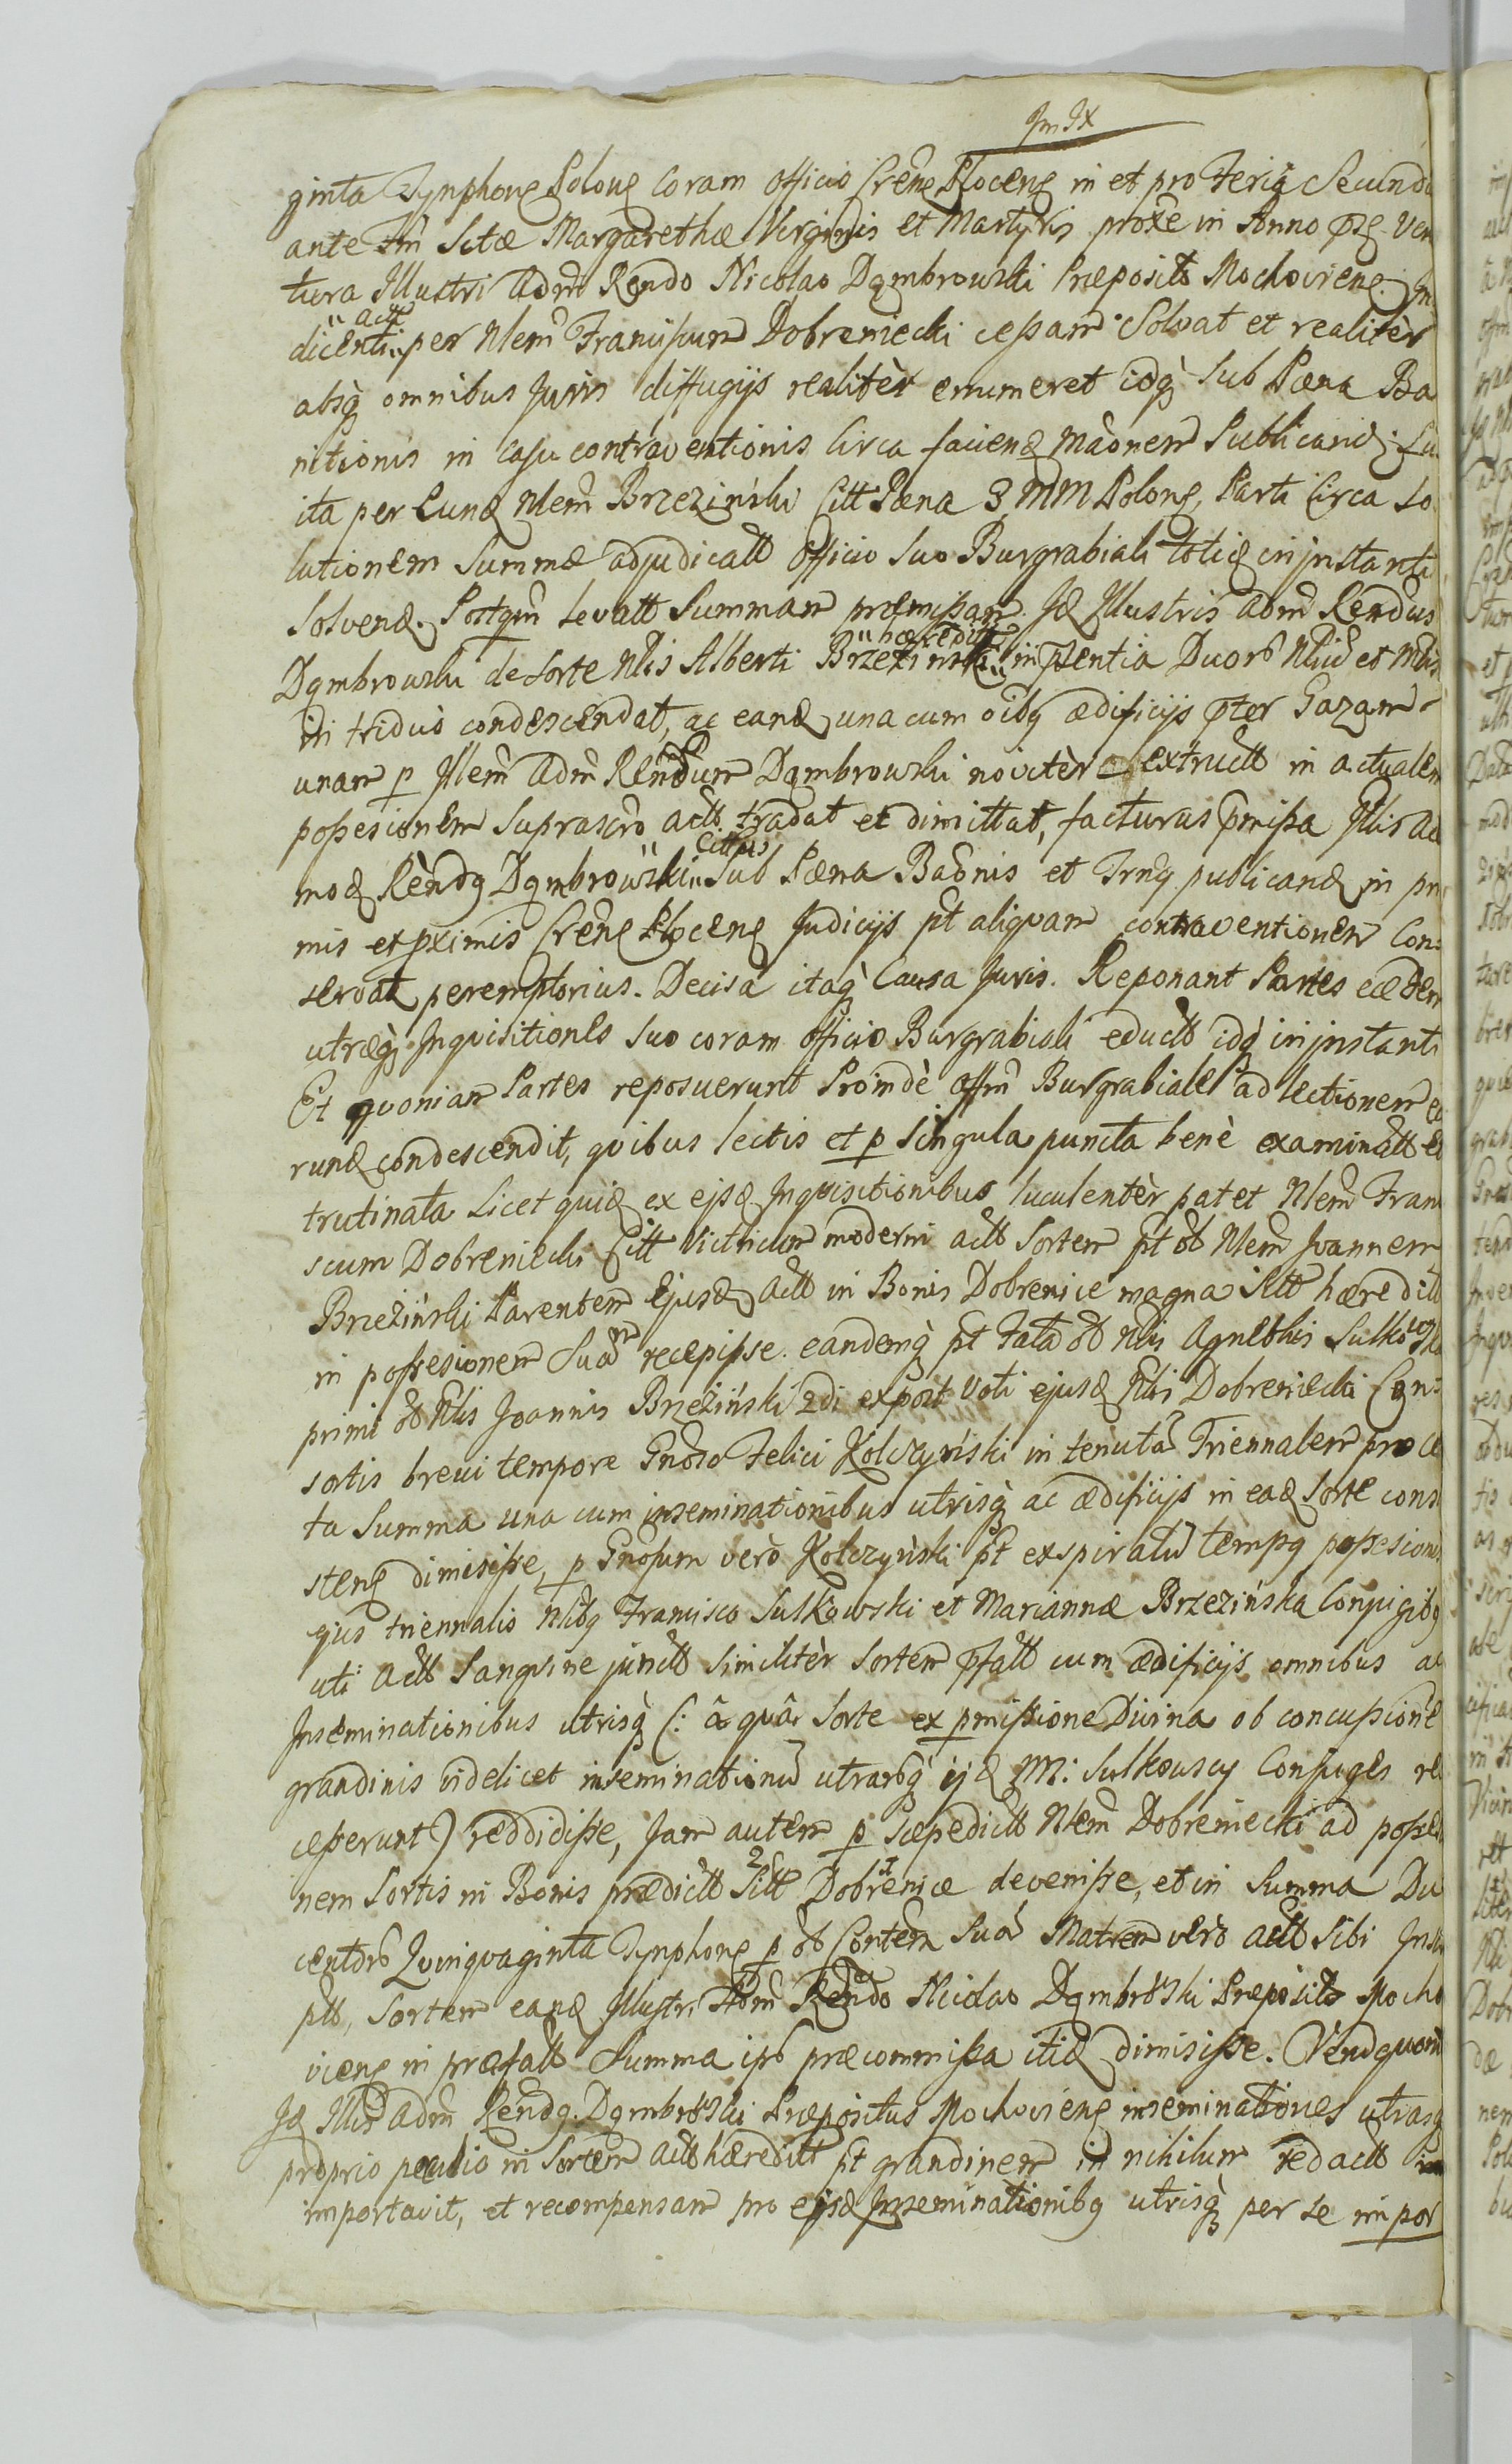 ginta Tynphong Polong Coram officio Creng Ploceng in et pro Feria Secunda
ante Fm Sctæ Margarethæ Virginis et Martyris proxe in Anno
tura Illustri Adm Rendo Nicolao Dąmbrowski Præposito Mochovieng.
actt
dicenti per Nlem Franciscum Dobreniecki cessam Solvat et realitèr
absq omnibus Juris diffugijs realitèr enumeret idq Sub Pæna Ba
nitionis in Casu contraventionis Circa faciend Maonem Publicand.
ita per Eund Nlem Brzeziński Citt Pæna 3 MM Polong, Parti Circa So
lutionem Summæ adjudicatt Officio Suo Burgrabiali totid in instanti
Solvend. Postqm levatt Summam præmissam. Id Illustris adm Rendus
hæreditt
Dąmbrowski de Sorte Nlis Alberti Brzezinski in pzentia Duorb Nliu et Mlis
in triduo condescendat, ac eand una cum oibq ædificijs pter Gazam
unam p Illem Adm Rendum Dąmbrowski noviter extructt in actualem
possesionem Suprascro actt. tradat et dimittat, facturus pmissa Itlis Ad
Cittus
mod Rendg Dąmbrowski Sub Pæna Baonis et Trng publicand in pri
mis et pximis Creng Ploceng Judicijs pt aliquam contraventionem Con:
servat peremptorius. Decisa itaq Causa Juris. Reponant Partes eædem
utræq Inquisitiones Suo coram Officio Burgrabiali eductt idq in instanti
Et quoniam Partes reposuerunt Proindè Offm Burgrabiale ad lectionem
rund condescendit, quibus lectis et p Singula puncta benè examinatt
trutinata Licet quid ex ejsd Inquisitionibus luculentèr patet Nlem Fran
scum Dobreniecki Citt Victricum moderni actt Sortem pt ob Nlem Joannem
Brzeziński Parentem Ejusd actt in Bonis Dobrenice magna sitt hæreditt
in possesionem Suam recepisse. eandemq pt Fata ob Nlis Agnethis Sulkowski
primi ob Nlis Joannis Brzeziński 2di ex post Voti ejusd Nlis Dobreniecki Con:
sortis brevi tempore Gnoso Felici Kolczyński in tenutam Triennalem pro
ta Summa una cum inseminationibus utrisq ac ædificijs in ead Sorte cons
steng dimisisse, p Gnosum verò Kolczyński pt expiratu tempg possesionis
ejus triennalis Nlibq Francisco Sulkowski et Mariannæ Brzezińska Conjugibq
uti actt Sangvine junctt Similiter Sortem pfatt cum ædificijs omnibus ac
Inseminationibus utrisq (: â quâ Sorte ex pmissione Divina ob concussionè
grandinis videlicet inseminationu utrarbq ijd MM: Sulkowscy Conjuges re
cesserunt) reddidisse, Jam autem p Sæpedictt Nlem Dobreniecki ad posses
nem Sortis in Bonis prædictt Sitt Dobrenice devenisse, et in Summa Du
centorb Quinquaginta Tynphong p ob Contem Sua Matrem verò actt Sibi
ptt, Sortem eand Illustri Adm Rendo Nicolao Dąmbrowski Præposito Mocho
vieng in præfatt Summa ipb præcommissa itid dimisisse. Verum quoni
Id Illis Adm Rendg. Dąmbrowski Præpositus Mochovieng inseminationes utrasq
proprio peculio in Sortem actt hæreditt pt grandinem in nihilum redactt
importavit, et recompensam pro ejsd Inseminationibq utrisq per se impor